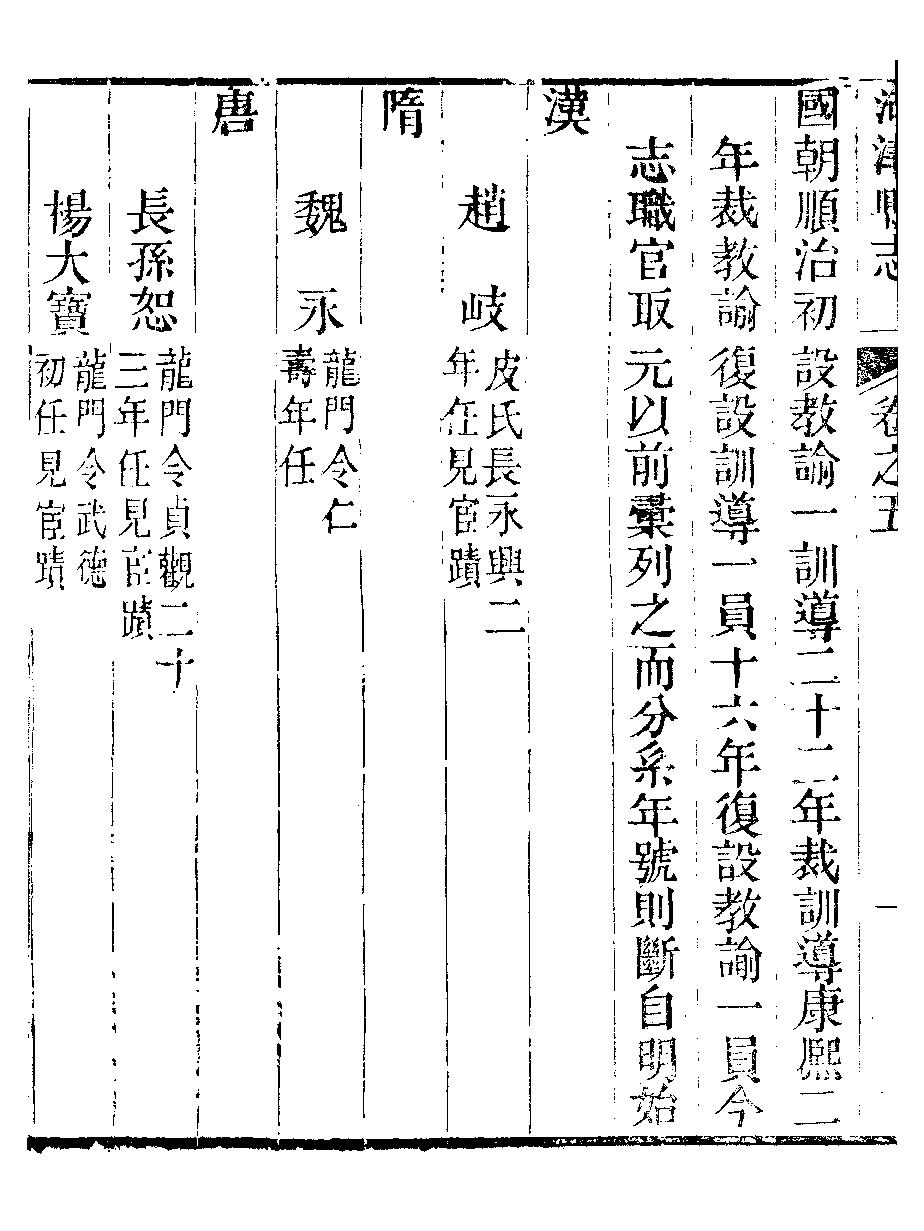 河津縣志
卷之五
一
國朝順治初設教諭一訓導二十二年裁訓導康熙二
年裁教諭復設訓導一員十六年復設教諭一員今
志職官取元以前彙列之而分系年號則斷自明始
漢
趙岐
皮氏長永興二
年任見宦蹟
隋
魏永
龍門令仁
壽年任
唐
長孫恕
龍門令貞觀二十
三年任見宦蹟
楊大寶
龍門令武德
初任見宦蹟